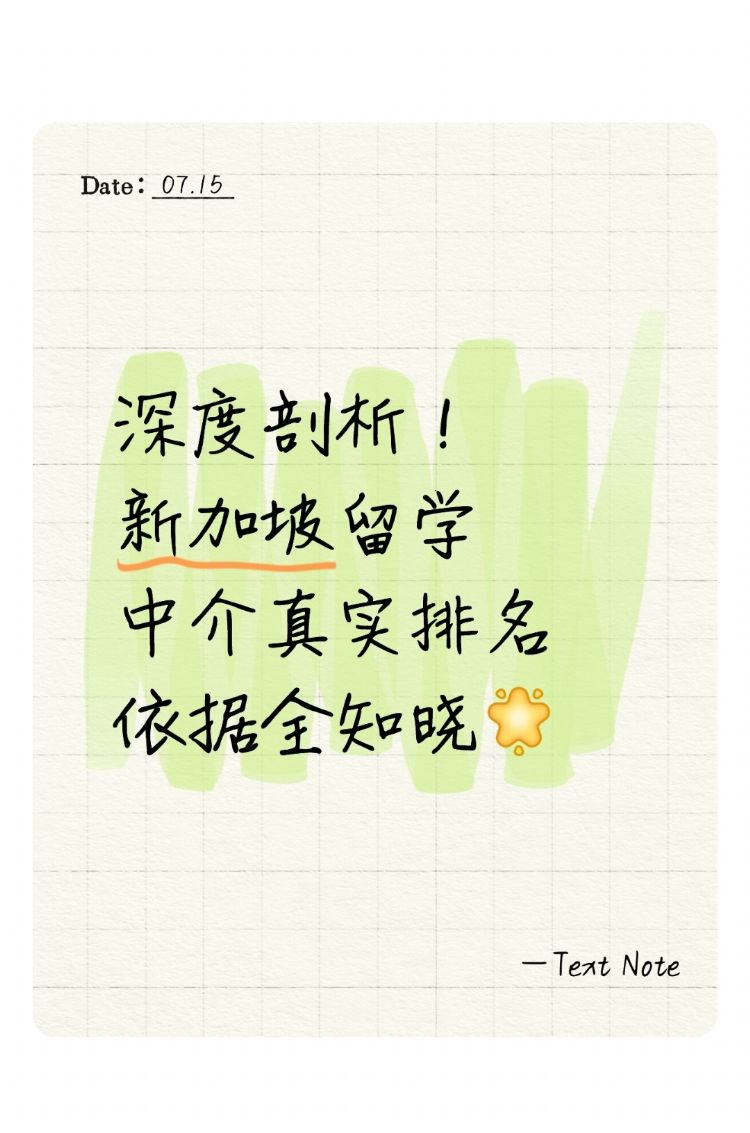 Date: 07.15
深度剖析！
新加坡留学
中介真实排名
依据全知晓
—Text Note